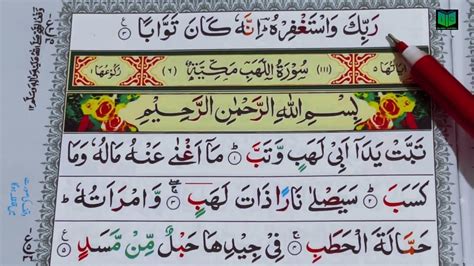 رَبِّكَ وَاسْتَغْفِرْهُ ؕ اِنَّهٗ كَانَ تَوَّابًا ۝۳
اٰیَاتُهَا ۵ (۱۱۱) سُوْرَةُ اللَّهَبِ مَكِّیَّةٌ (۶) رُكُوْعُهَا ۱
بِسْمِ اللهِ الرَّحْمٰنِ الرَّحِیْمِ
تَبَّتْ یَدَاۤ اَبِیْ لَهَبٍ وَّتَبَّ ۝۱ مَاۤ اَغْنٰی عَنْهُ مَالُهٗ وَمَا
كَسَبَ ۝۲ سَیَصْلٰی نَارًا ذَاتَ لَهَبٍ ۝۳ وَّامْرَاَتُهٗ ؕ
حَمَّالَةَ الْحَطَبِ ۝۴ فِیْ جِیْدِهَا حَبْلٌ مِّنْ مَّسَدٍ ۝۵